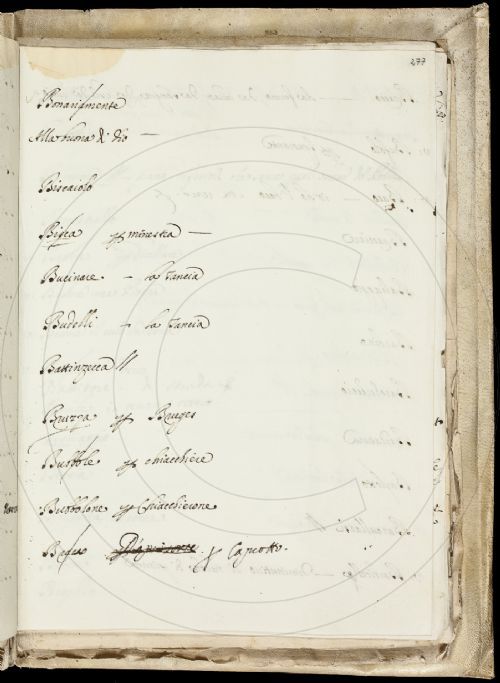 277
Bonariamente
Alla buona di dio —
Biscaiolo
Bisca p minestra —
Bucinare — la Tancia
Budelli — la Tancia
Battinzecca //
Buzza p Burges
Bubbole p chiacchiere
Bubbolone p Chiacchierone
p Capotto.